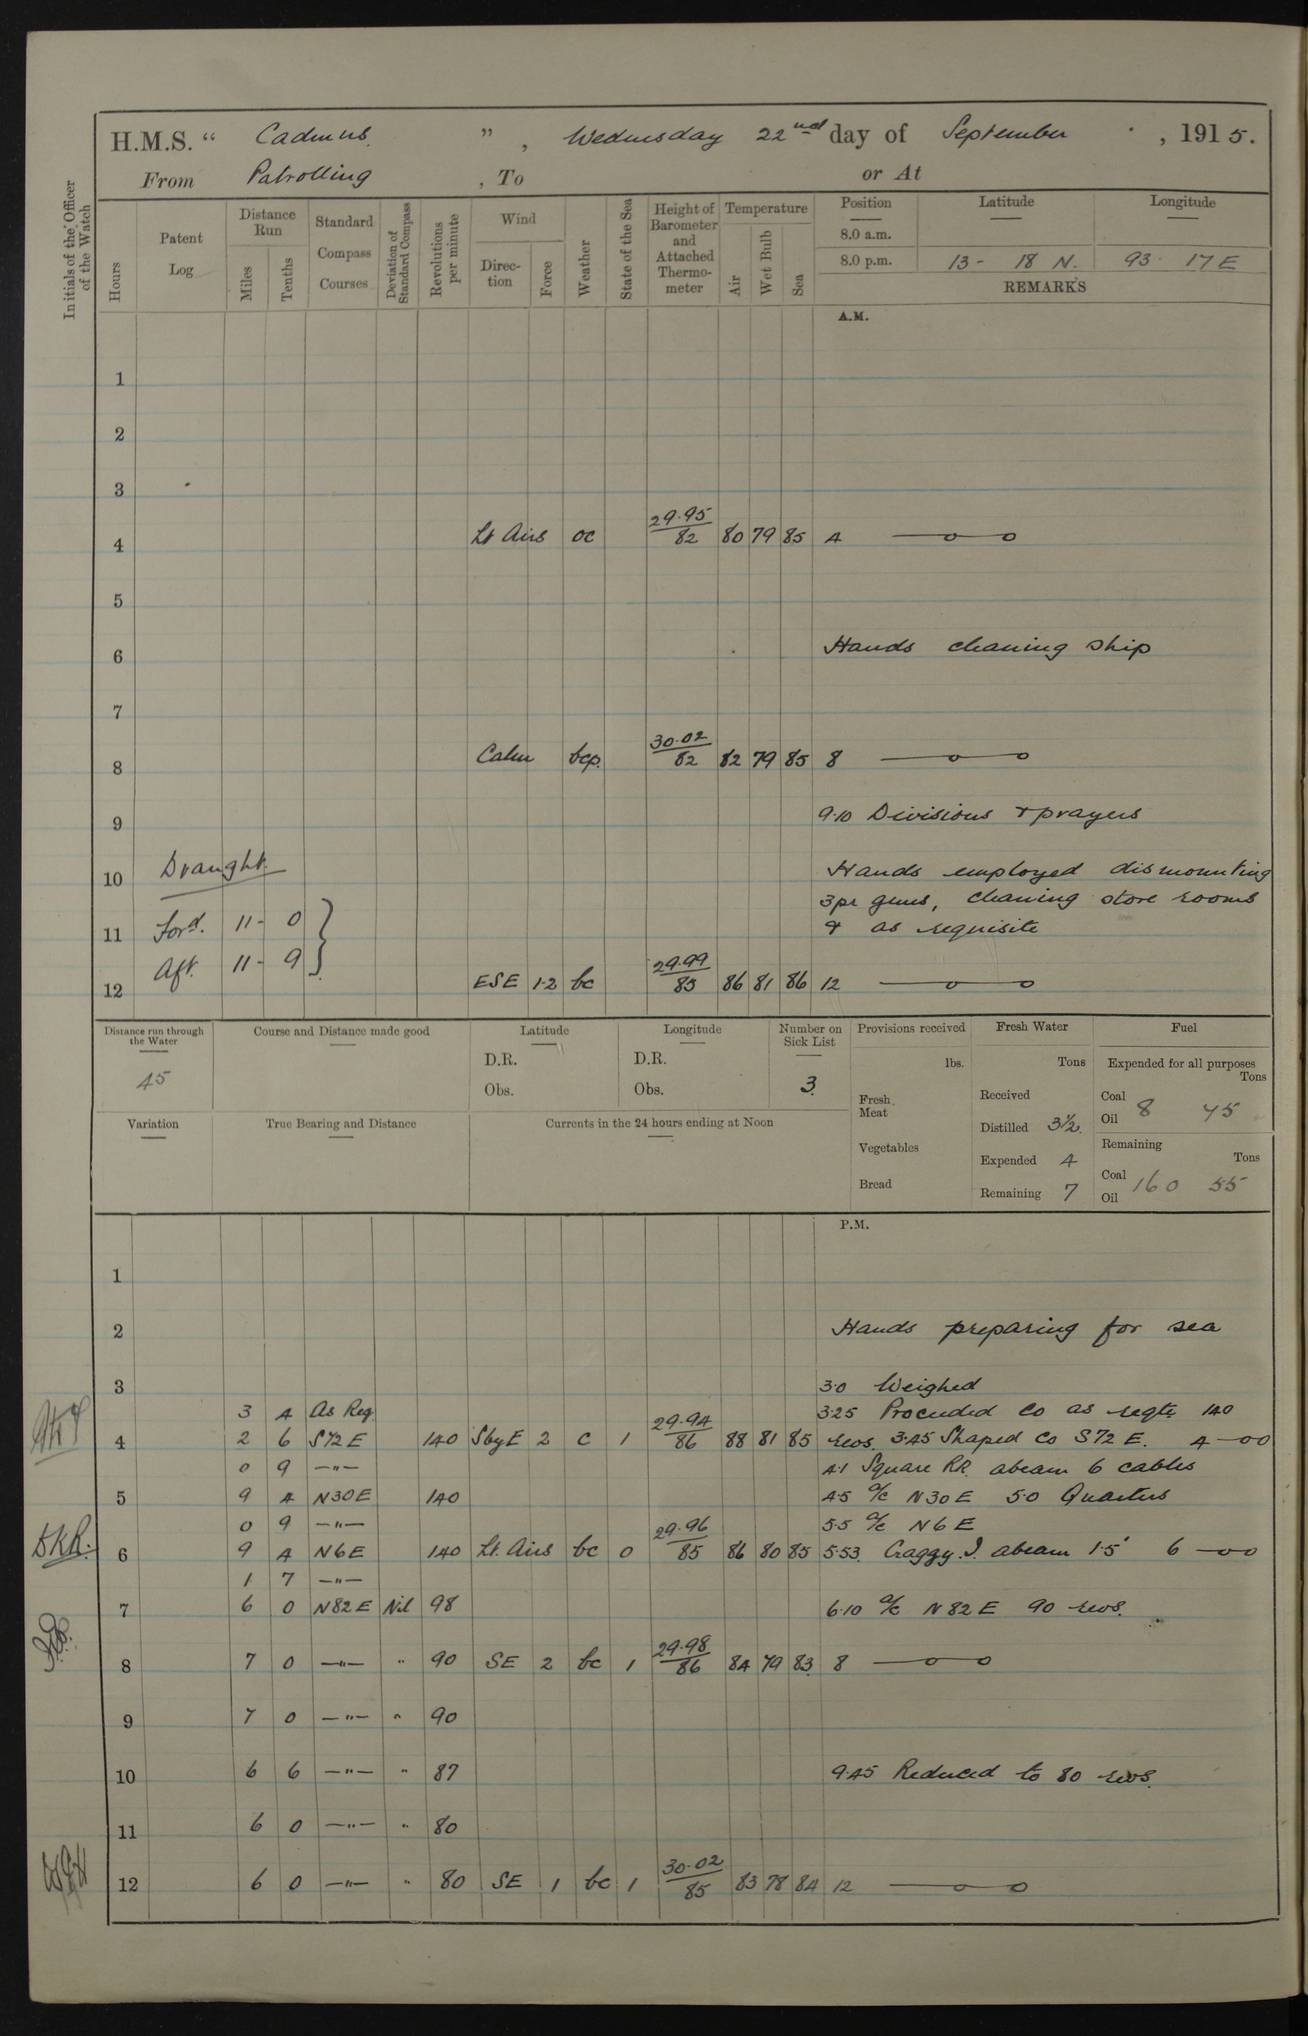 H.M.S. “ Cadmus ” , Wednesday 22nd day of September , 1915.
From Patrolling , To or At
Initials of the Officer of the Watch
Hours
Patent Log
Distance Run
Miles
Tenths
Standard Compass Courses
Deviation of Standard Compass
Revolutions per minute
Wind
Direction
Force
Weather
State of the Sea
Height of Barometer and Attached Thermometer
Temperature
Air
Wet Bulb
Sea
Position Latitude Longitude
8.0 a.m.
8.0 p.m. 13 - 18 N. 93 . 17 E
REMARKS
A.M.
1
2
3
4 Lt Airs oc 29.95/82 80 79 85 4 —o—o
5
6 Hands cleaning ship
7
8 Calm bcp. 30.02/82 82 79 85 8 —o—o
9 9.10 Divisions & prayers
10 Draught. Hands employed dismounting
3pr guns, cleaning store rooms
11 Ford. 11 - 0 & as requisite
Aft. 11 - 9
12 ESE 1.2 bc 29.99/83 86 81 86 12 —o—o
Distance run through the Water
45
Course and Distance made good
Latitude
D.R.
Obs.
Longitude
D.R.
Obs.
Number on Sick List
3
Provisions received
lbs.
Fresh Meat
Vegetables
Bread
Fresh Water
Tons
Received
Distilled 3½
Expended 4
Remaining 7
Fuel
Expended for all purposes
Tons
Coal
Oil 8 75
Remaining
Tons
Coal 160 55
Oil
Variation
True Bearing and Distance
Currents in the 24 hours ending at Noon
P.M.
1
2 Hands preparing for sea
3 3.0 Weighed
3 4 As Req. 3.25 Proceeded Co as reqte 140
4 2 6 S72E 140 SbyE 2 c 1 29.94/86 88 81 85 revs. 3.45 Shaped Co S72E. 4 —oo
0 9 —"— 4.1 Square RR. abeam 6 cables
5 9 4 N30E 140 4.5 a/c N30E 5.0 Quarters
0 9 —"— 5.5 a/c N6E
DKR.
6 9 4 N6E 140 Lt. Airs bc 0 29.96/85 86 80 85 5.53. Craggy I. abeam 1.5' 6 —oo
1 7 —"—
7 6 0 N82E Nil 98 6.10 a/c N82E 90 revs.
8 7 0 —"— " 90 SE 2 bc 1 29.98/86 84 79 83 8 —o—o
9 7 0 —"— " 90
10 6 6 —"— " 87 9.45 Reduced to 80 revs.
11 6 0 —"— " 80
12 6 0 —"— " 80 SE 1 bc 1 30.02/85 83 78 84 12 —o—o